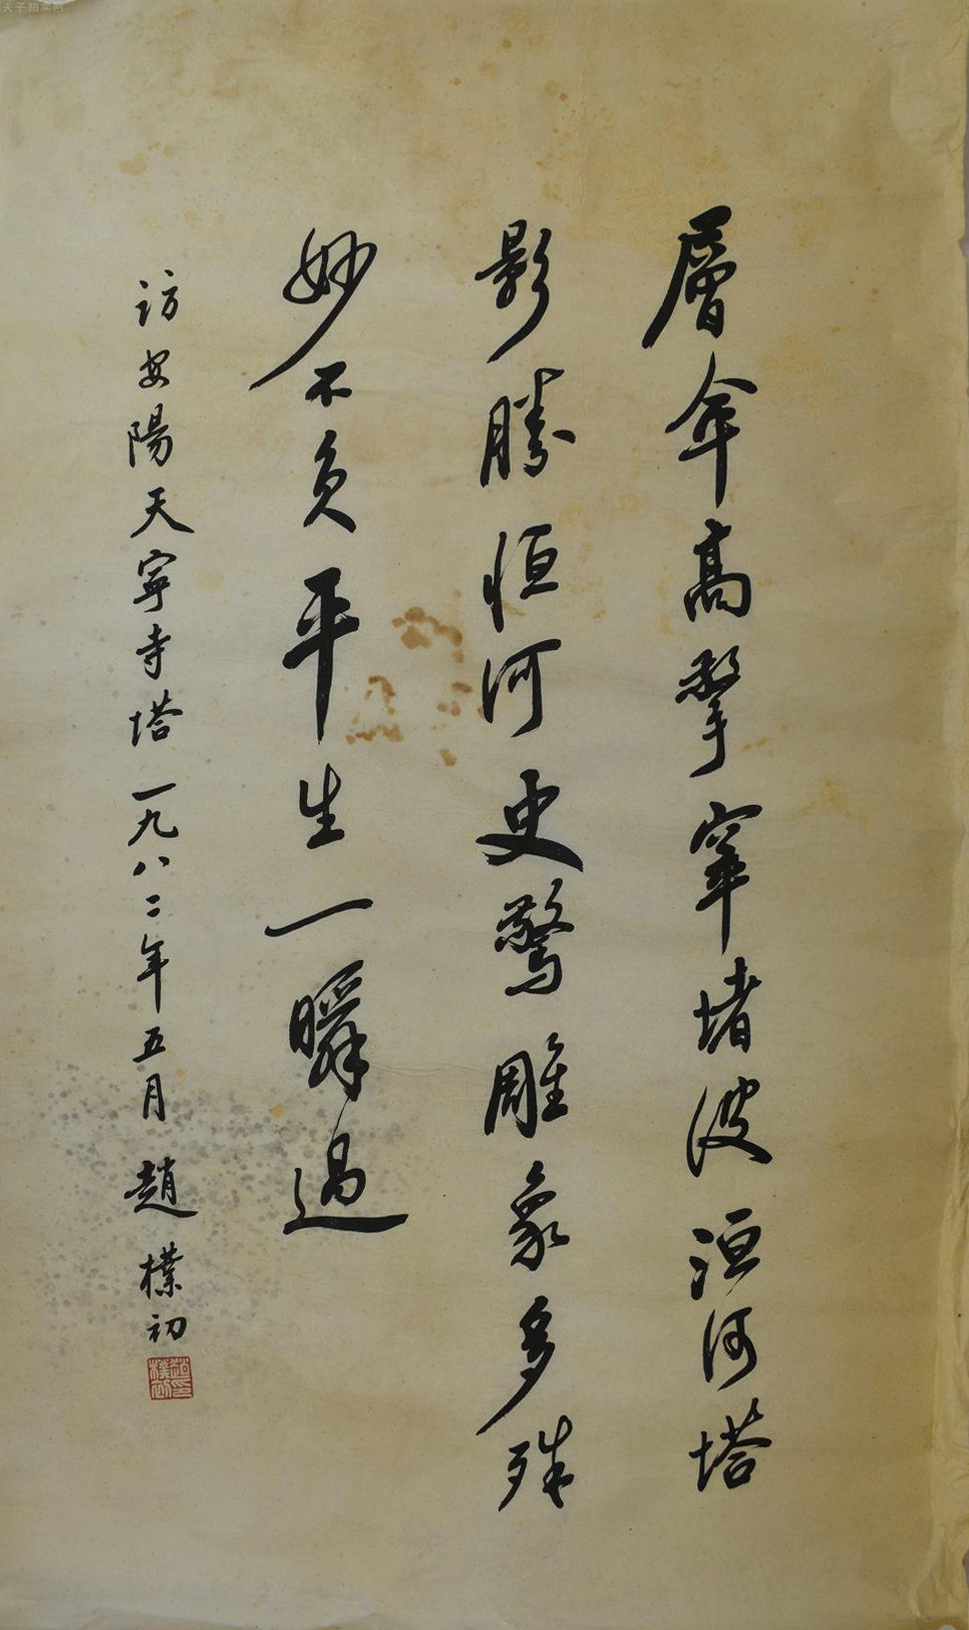 層傘高擎窣堵波洹河塔
影勝恒河更驚雕象多殊
妙不負平生一瞬過
訪安陽天寧寺塔一九八二年五月 趙樸初
趙樸初印
天子拍卖网